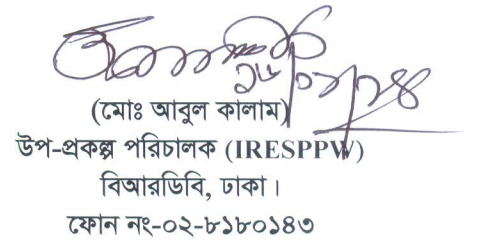 (মোঃ আবুল কালাম)
উপ-প্রকল্প পরিচালক (IRESPPW)
বিআরডিবি, ঢাকা।
ফোন নং-০২-৮১৮০১৪৩